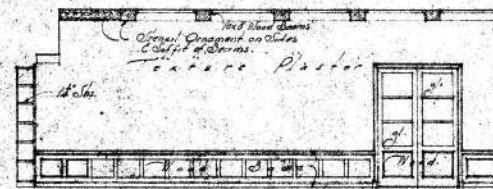 10x8 Wood Beams
Stencil Ornament on Sides
& Soffit of Beams.
Texture Plaster
gl.
gl.
Wood
Wood.